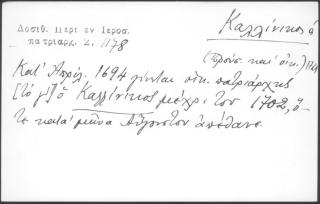 Δοσιθ. Περὶ ἐν Ἱεροσ.
πατριάρχ. σ. 1178
Καλλίνικος ὁ
(Προύσ. καὶ οἰκ.)
Κατ' Ἀπρίλ. 1694 γίνεται οἰκ. πατριάρχης
[τὸ γ'] ὁ Καλλίνικος μέχρι τοῦ 1702, ὅ-
τε κατὰ μῆνα Αὔγουστον ἀπέθανε.